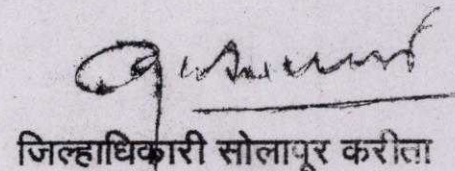 जिल्हाधिकारी सोलापूर करीता